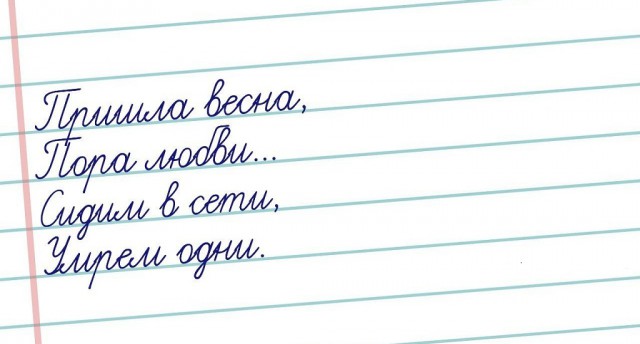 Пришла весна,
Пора любви...
Сидим в сети,
Умрем одни.